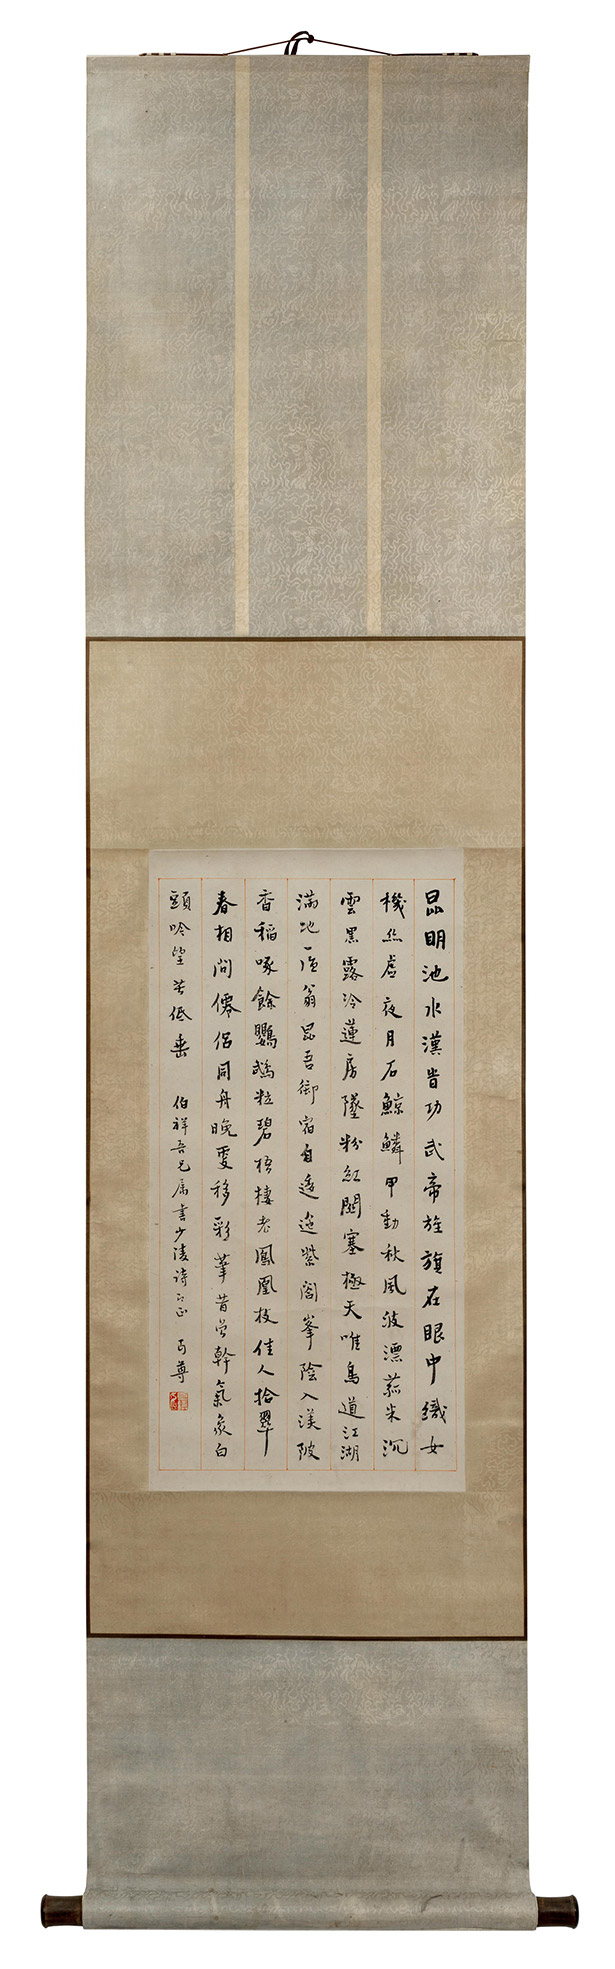 昆明池水漢時功武帝旌旗在眼中織女
機絲虛夜月石鯨鱗甲動秋風波漂菰米沉
雲黑露冷蓮房墜粉紅關塞極天唯鳥道江湖
滿地一漁翁昆吾御宿自逶迤紫閣峯陰入渼陂
香稻啄餘鸚鵡粒碧梧棲老鳳凰枝佳人拾翠
春相問僊侶同舟晚更移彩筆昔曾幹氣象白
頭吟望苦低垂 伯祥吾兄屬書少陵詩 正 丐尊